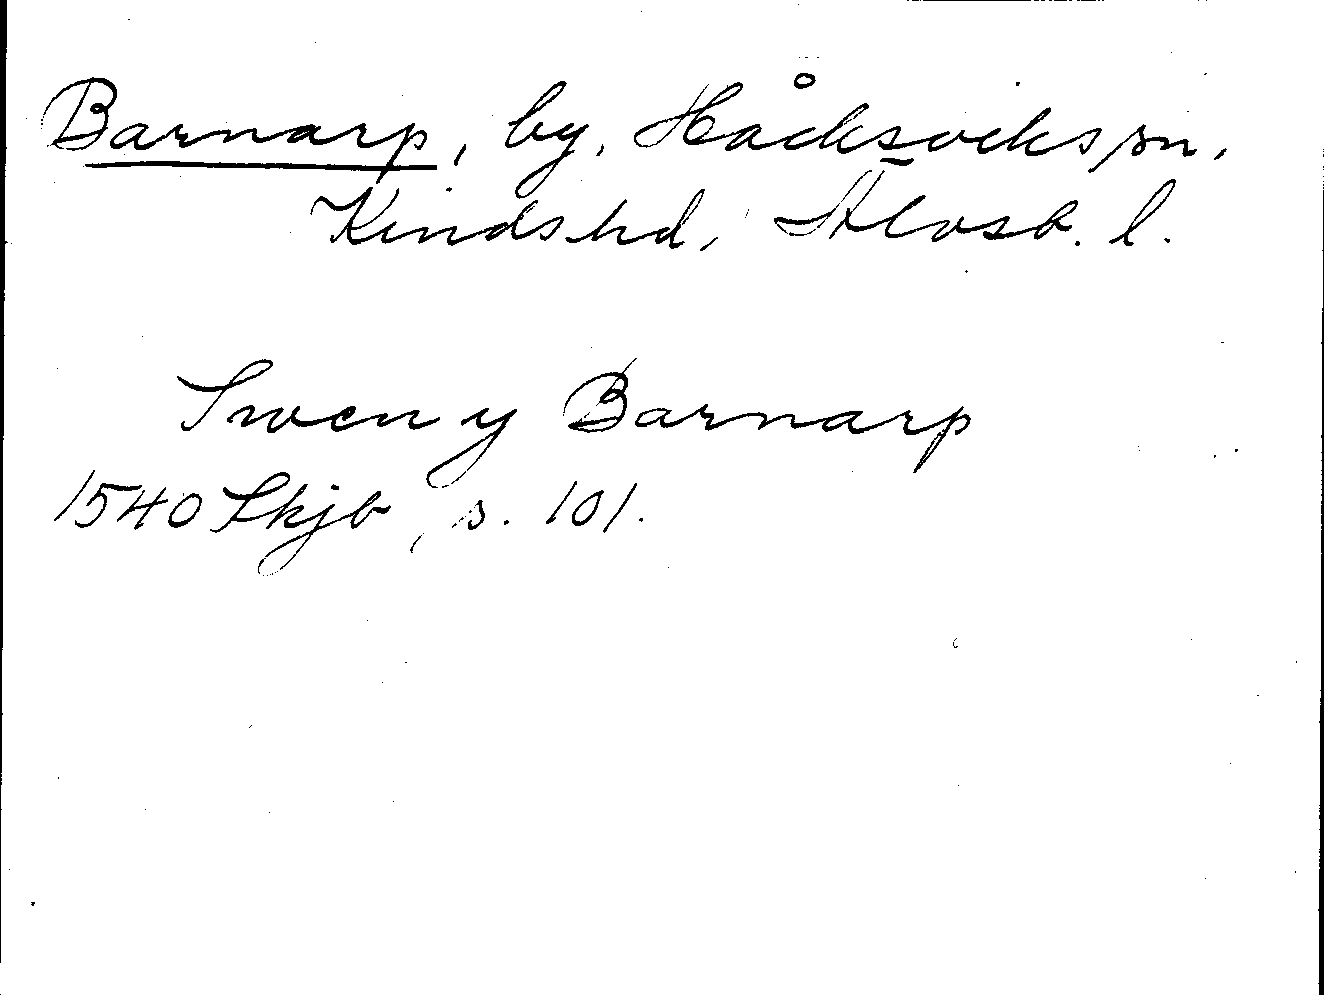 Barnarp, by, Håcksviks sn,
Kinds hd, Älvsb. l.
Swen y Barnarp
1540 Skjb, s. 101.